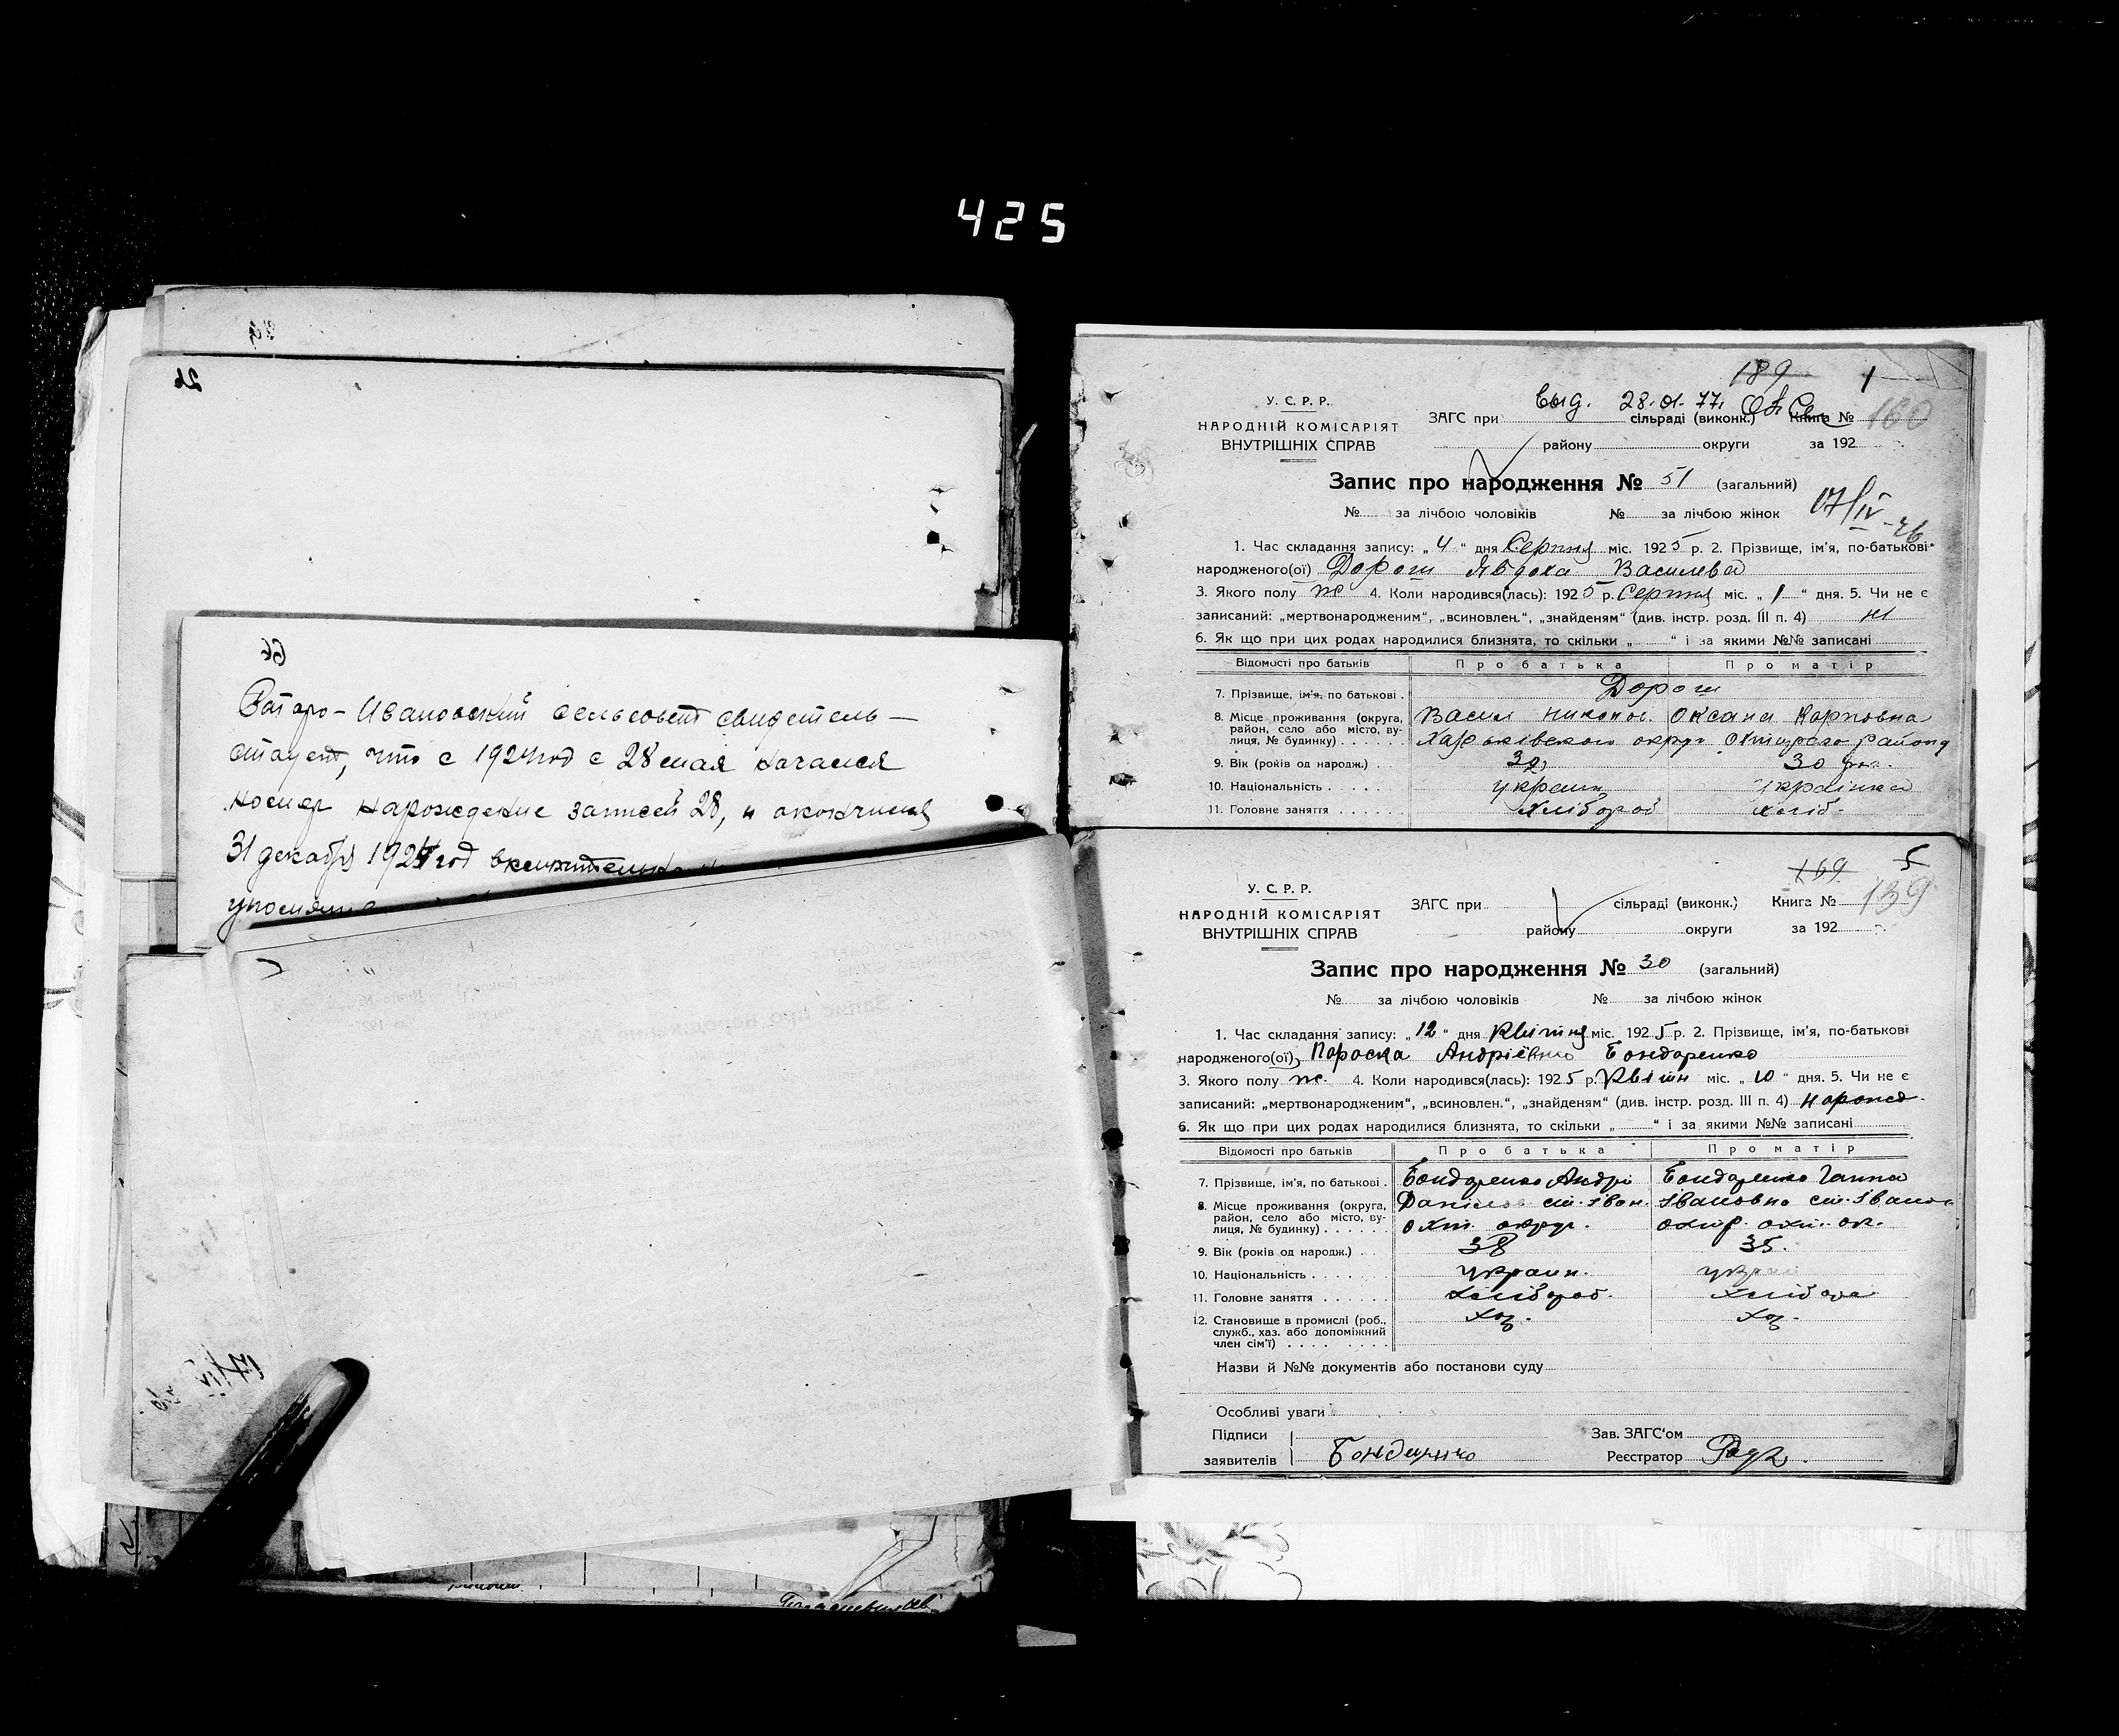 425
Ивановский сельсовет свидетель-
ствует, что с 1924 год с 28 мая начался
номер нарождение записей 28, и
31 декабря 192 год включительно
189 1
выд. 28.01.77.
У. С. Р. Р.
НАРОДНІЙ КОМІСАРІЯТ
ВНУТРІШНІХ СПРАВ
ЗАГС при сільраді (виконк.) Книга № 160
району округи за 192
Запис про народження № 51 (загальний)
№ за лічбою чоловіків № за лічбою жінок
17/IV-
1. Час складання запису: „ 4 “ дня Серпня міс. 1925 р. 2. Прізвище, ім'я, по-батькові
народженого(ої) Дорош Явдоха Василева
3. Якого полу ж 4. Коли народився(лась): 1925 р. Серпня міс. „ 1 “ дня. 5. Чи не є
записаний: „мертвонародженим“, „всиновлен.“, „знайденям“ (див. інстр. розд. III п. 4) ні
6. Як що при цих родах народилися близнята, то скільки „ “ і за якими №№ записані
Відомости про батьків Про батька Про матір
7. Прізвище, ім'я, по батькові . Дорош
8. Місце проживання (округа, Васил Никонов. Оксана Карповна
район, село або місто, ву-
лиця, № будинку) . . . . . . Харьківского округ. району
9. Вік (років од народж.) . 32 30
10. Національність . . . . . україн українка
11. Головне заняття . . . . . . хлібороб хліб.
169 5
У. С. Р. Р.
НАРОДНІЙ КОМІСАРІЯТ
ВНУТРІШНІХ СПРАВ
ЗАГС при сільраді (виконк.) Книга № 139
району округи за 192
Запис про народження № 30 (загальний)
№ за лічбою чоловіків № за лічбою жінок
1. Час складання запису: „ 12 “ дня Квітня міс. 1925 р. 2. Прізвище, ім'я, по-батькові
народженого(ої) Параска Андріёвна Бондаренко
3. Якого полу ж. 4. Коли народився(лась): 1925 р. Квітн міс. „ 10 “ дня. 5. Чи не є
записаний: „мертвонародженим“, „всиновлен.“, „знайденям“ (див. інстр. розд. III п. 4) нарожд.
6. Як що при цих родах народилися близнята, то скільки „ “ і за якими №№ записані
Відомости про батьків Про батька Про матір
7. Прізвище, ім'я, по батькові . Бондаренко Андрі Бондаренко Ганна
8. Місце проживання (округа, Данілов ст. Іван. Івановна ст. Іванов
район, село або місто, ву-
лиця, № будинку) . . . . . . Охт. округ. охт. ок.
9. Вік (років од народж.) . . 38 35.
10. Національність . . . . . . україн. україн
11. Головне заняття . . . . . . хлібороб. хлібороб
12. Становище в промислі (роб., хоз. хоз.
служб., хаз. або допоміжний
член сім'ї) . . . . . . . .
Назви й №№ документів або постанови суду
Особливі уваги
Підписи Зав. ЗАГС'ом
заявителів Бондаренко Реєстратор